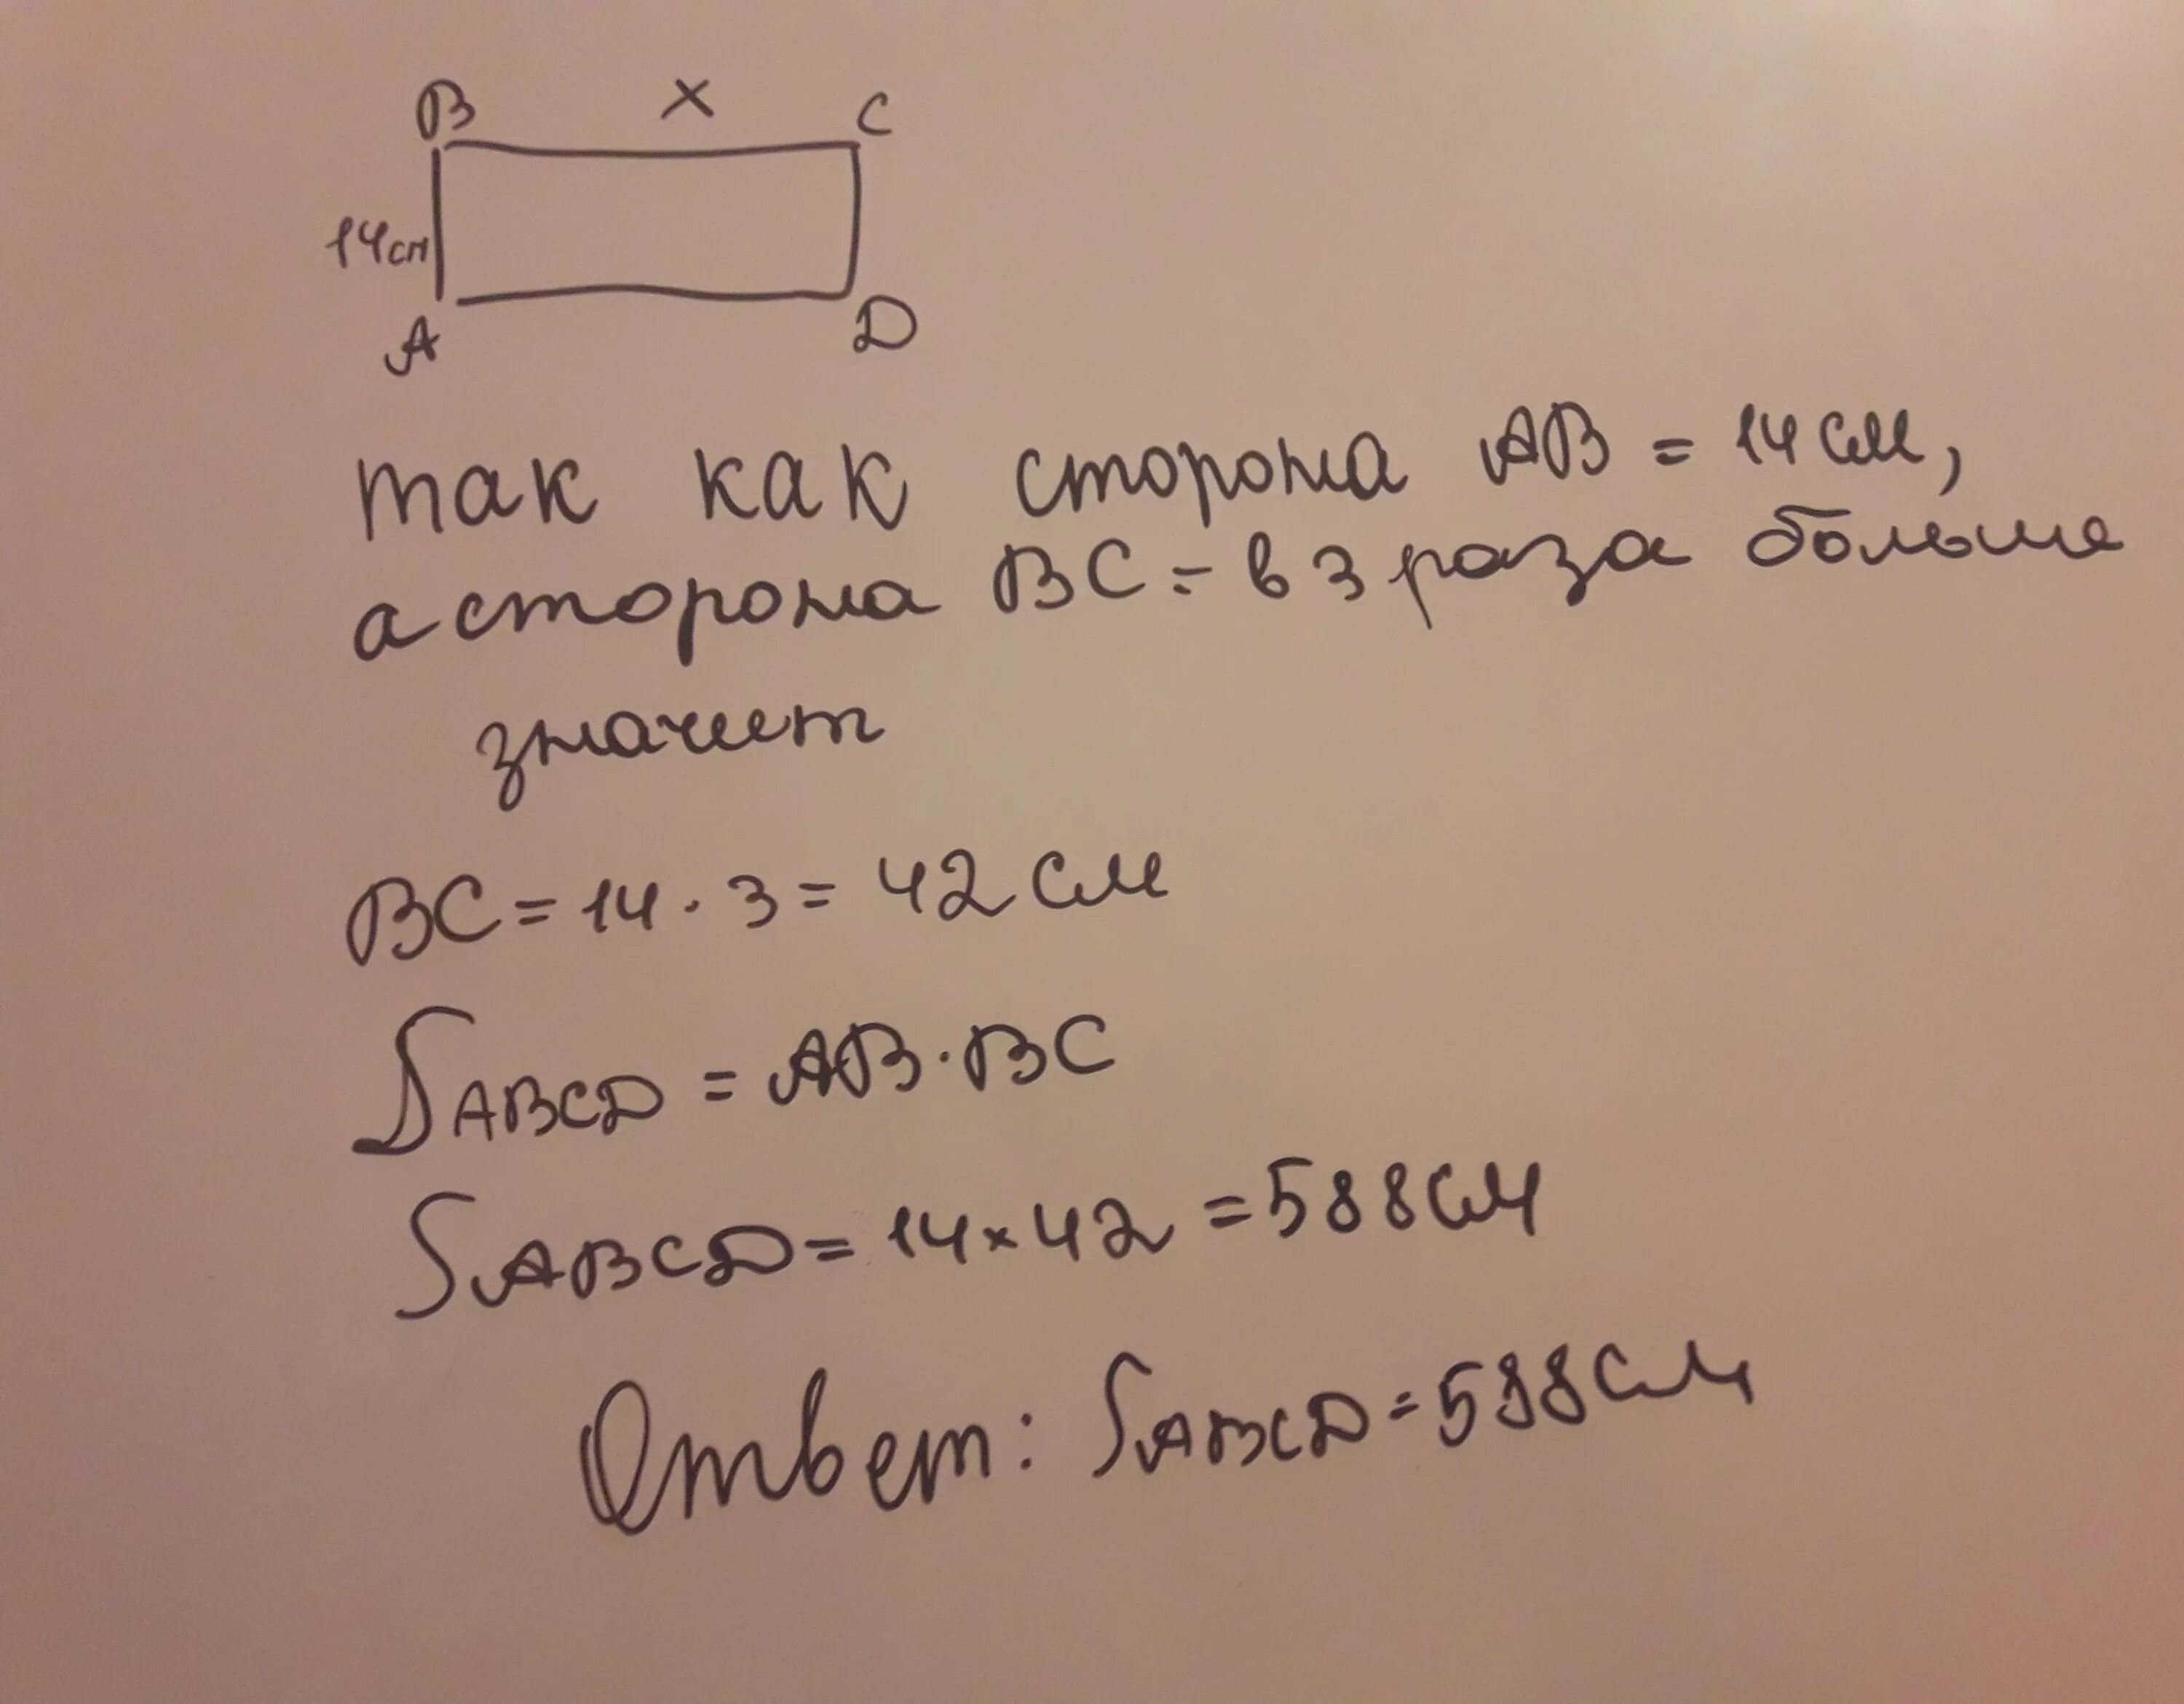 B x C
14см
A D
так как сторона AB = 14 см,
а сторона BC = в 3 раза больше
значит
BC = 14 · 3 = 42 см
S ABCD = AB · BC
S ABCD = 14 × 42 = 588 см
Ответ: S ABCD = 588 см